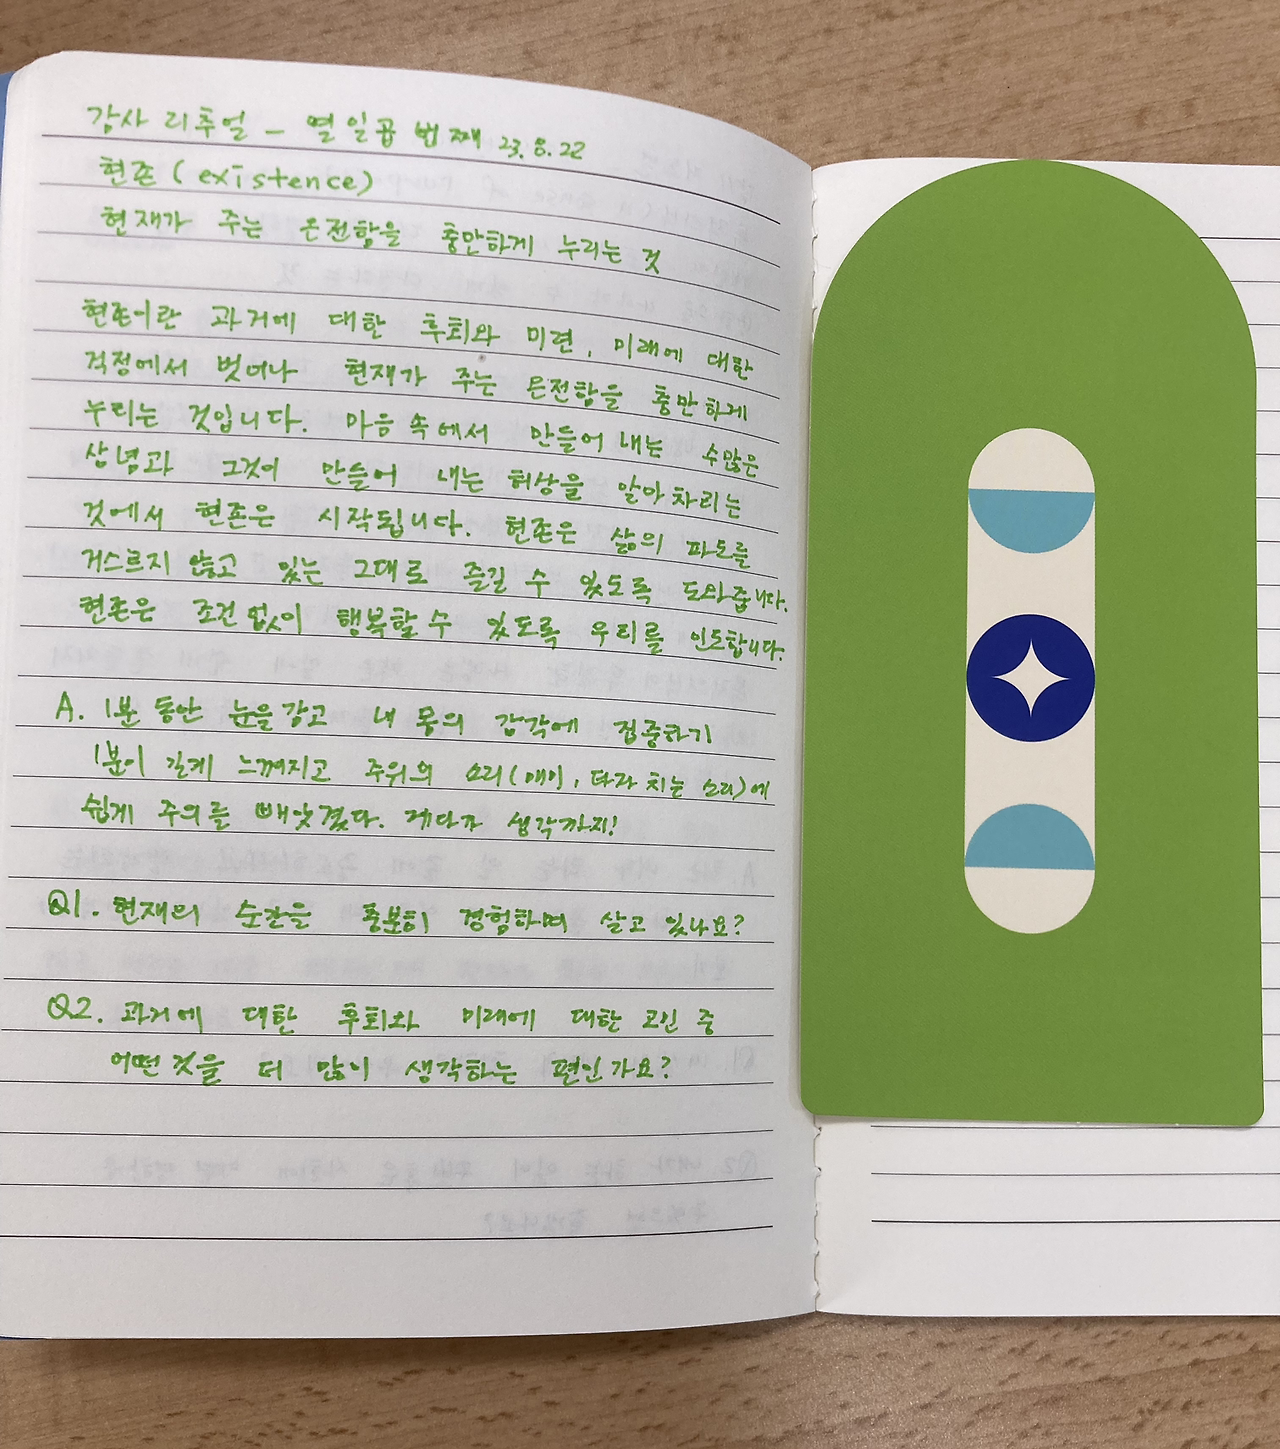 감사 리추얼 - 열일곱 번째 23.8.22
현존(existence)
현재가 주는 온전함을 충만하게 누리는 것
현존이란 과거에 대한 후회와 미련, 미래에 대한
걱정에서 벗어나 현재가 주는 온전함을 충만하게
누리는 것입니다. 마음 속에서 만들어 내는 수많은
상념과 그것이 만들어 내는 허상을 알아차리는
것에서 현존은 시작됩니다. 현존은 삶의 파도를
거스르지 않고 있는 그대로 즐길 수 있도록 도와줍니다.
현존은 조건 없이 행복할 수 있도록 우리를 인도합니다.
A. 1분 동안 눈을 감고 내 몸의 감각에 집중하기
1분이 길게 느껴지고 주위의 소리(매미, 타자 치는 소리)에
쉽게 주의를 빼앗겼다. 게다가 생각까지!
Q1. 현재의 순간을 충분히 경험하며 살고 있나요?
Q2. 과거에 대한 후회와 미래에 대한 고민 중
어떤 것을 더 많이 생각하는 편인가요?